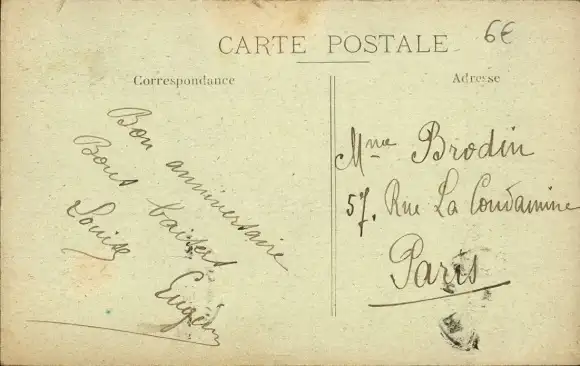 CARTE POSTALE
6€
Correspondance
Adresse
Bon anniversaire
Bons baisers
Louise
Eugén
Mme Brodin
57, Rue La Condamine
Paris